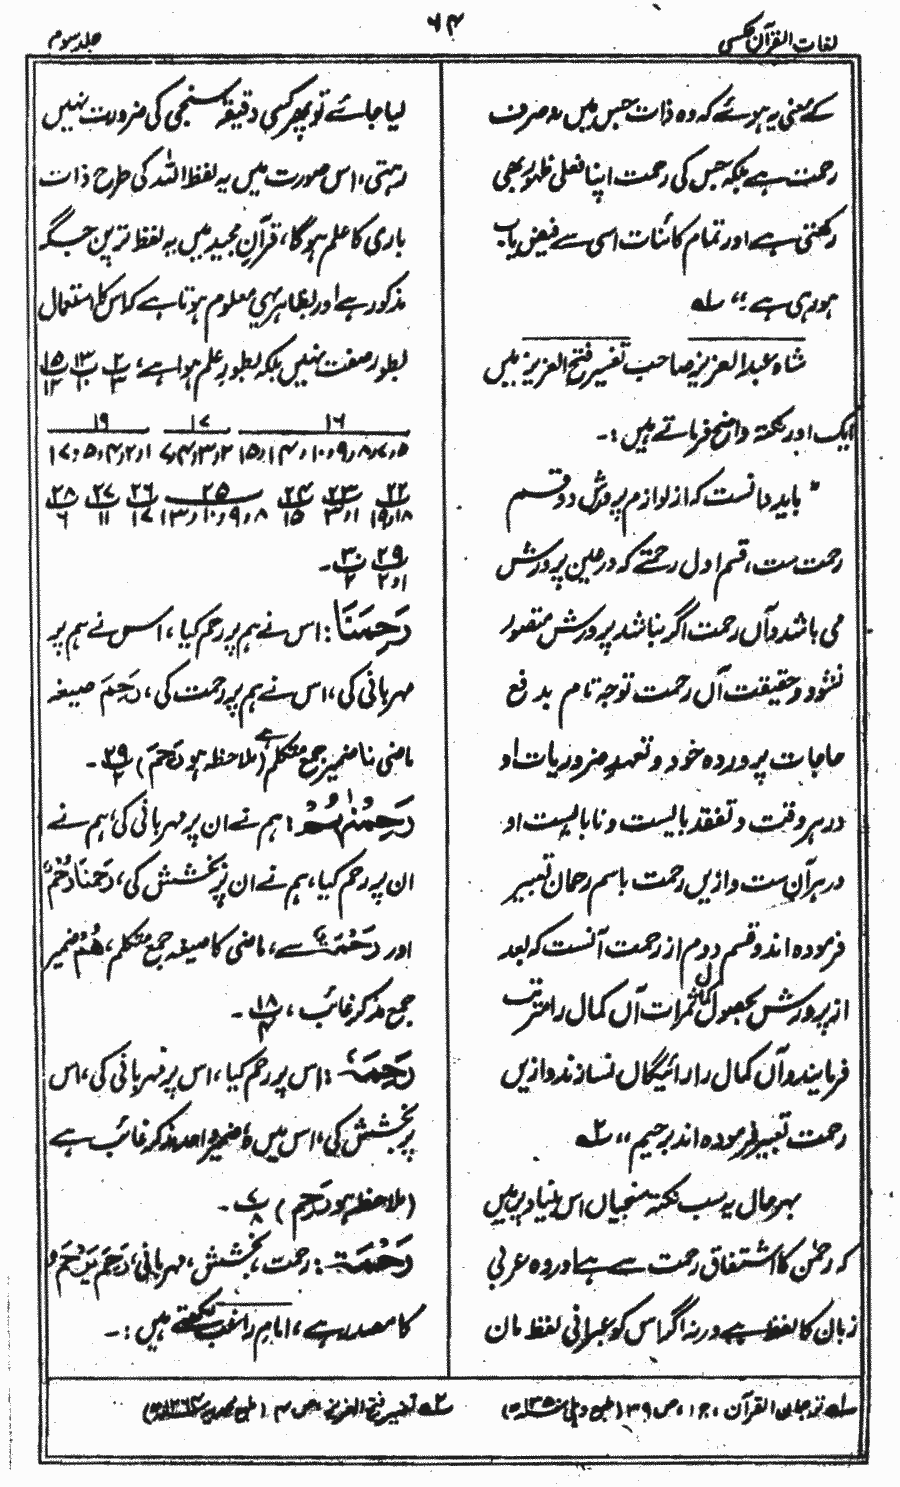 لغات القرآن عکسی
۶۴
جلد سوم
کے معنی یہ ہوئے کہ وہ ذات جس میں نہ صرف
رحمت ہے بلکہ جس کی رحمت اپنا فعلی ظہور بھی
رکھتی ہے اور تمام کائنات اسی سے فیض یاب
ہو رہی ہے ،، لہ
شاہ عبدالعزیز صاحب تفسیر فتح العزیز میں
ایک اور نکتہ واضح فرماتے ہیں :-
" باید دانست کہ از لوازم پرورش دو قسم
رحمت ست، قسم اول رحمتے کہ در عین پرورش
می باشد و آں رحمت اگر نباشد پرورش متصور
نشود و حقیقت آں رحمت توجہ تام بد فع
حاجات پرورده خود و تعہد ضروریات او
در ہر وقت و تفقد بایست و نابایست او
در ہر آن ست و ازیں رحمت باسم رحمان تعبیر
فرموده اند و قسم دوم از رحمت آنست کہ بعد
از پرورش بحصول کمال ثمرات آں کمال را مترتب
فرمایند و آں کمال را رائیگاں نسازند و ازیں
رحمت تعبیر فرموده اند برحیم ،، ۲ہ
بہر حال یہ سب نکتہ سنجیاں اس بنیاد پر ہیں
کہ رحمٰن کا اشتقاق رحمت سے ہے اور وہ عربی
زبان کا لفظ ہے ورنہ اگر اس کو عبرانی لفظ مان
لیا جائے تو پھر کسی دقیقہ سنجی کی ضرورت نہیں
رہتی، اس صورت میں یہ لفظ اللہ کی طرح ذات
باری کا علم ہو گا، قرآن مجید میں یہ لفظ ترپن جگہ
مذکور ہے اور بظاہر یہی معلوم ہوتا ہے کہ اس کا استعمال
بطور صفت نہیں بلکہ بطور علم ہوا ہے، پ۲ ۳ پ۱۳ ۱۰ پ۱۵ ۱۲
۱۶ ۱۷ ۱۹
۵، ۷، ۸، ۹، ۱۰، ۱۴، ۱۵ ۲، ۳، ۴، ۷ ۱، ۲، ۴، ۵، ۱۷
پ۲۲ ۱۸، ۱۹ پ۲۳ ۱، ۳ پ۲۴ ۱۵ ۲۵ ۸، ۹، ۱۰، ۱۳ پ۲۶ ۱۷ پ۲۷ ۱۱ پ۲۸ ۶
پ۲۹ ۱، ۲ پ۳۰ ۲ -
رَحِمَنَا : اس نے ہم پر رحم کیا، اس نے ہم پر
مہربانی کی، اس نے ہم پر رحمت کی، رَحِمَ صیغہ
ماضی نا ضمیر جمع متکلم ہے (ملاحظہ ہو رَحِمَ) پ۲۹ ۲ -
رَحِمْنٰہُمْ : ہم نے ان پر مہربانی کی، ہم نے
ان پر رحم کیا، ہم نے ان پر بخشش کی، رَحِمْنَا رَحْمٌ
اور رَحْمَۃٌ سے، ماضی کا صیغہ جمع متکلم، ھُمْ ضمیر
جمع مذکر غائب، پ۱۸ ۴ -
رَحِمَہٗ : اس پر رحم کیا، اس پر مہربانی کی، اس
پر بخشش کی، اس میں ہٗ ضمیر واحد مذکر غائب ہے
(ملاحظہ ہو رَحِمَ) پ۷ ۸ -
رَحْمَۃ : رحمت، بخشش، مہربانی، رَحِمَ یَرْحَمُ
کا مصدر ہے، امام راغب لکھتے ہیں :-
لہ ترجمان القرآن، ج۱، ص۳۹ (طبع دہلی ۱۳۵۰ھ)
۲ہ تفسیر فتح العزیز، ص۴